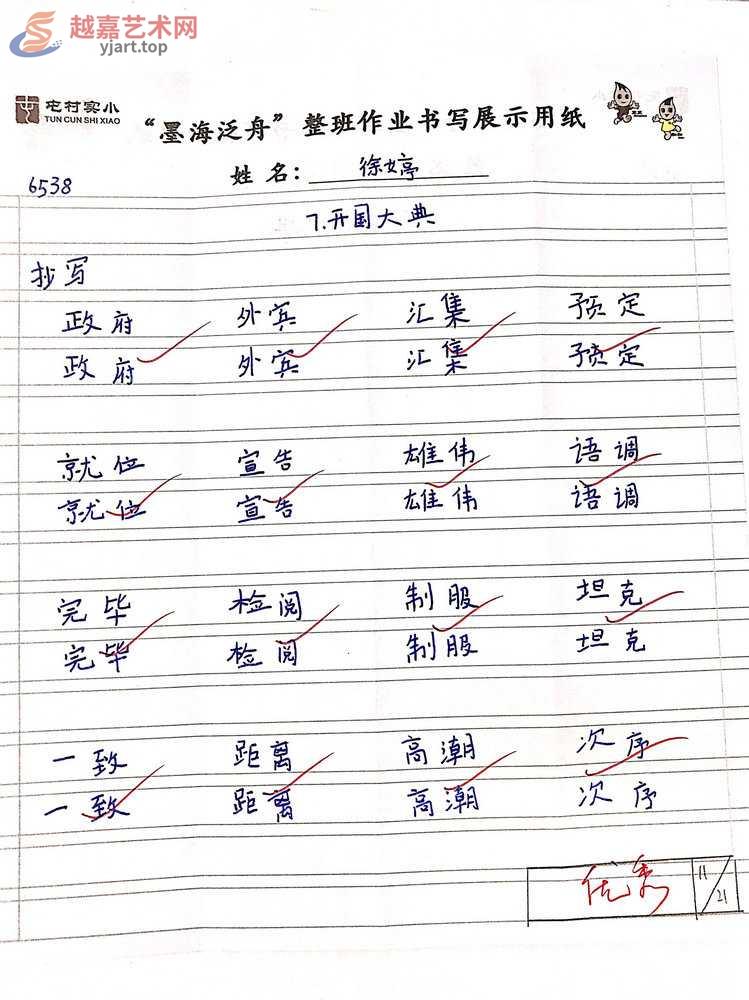 越嘉艺术网
yjart.top
屯村实小
TUN CUN SHI XIAO
“墨海泛舟”整班作业书写展示用纸
姓名：徐婷
6538
7.开国大典
抄写
政府 外宾 汇集 预定
政府 外宾 汇集 预定
就位 宣告 雄伟 语调
就位 宣告 雄伟 语调
完毕 检阅 制服 坦克
完毕 检阅 制服 坦克
一致 距离 高潮 次序
一致 距离 高潮 次序
优秀 11/21